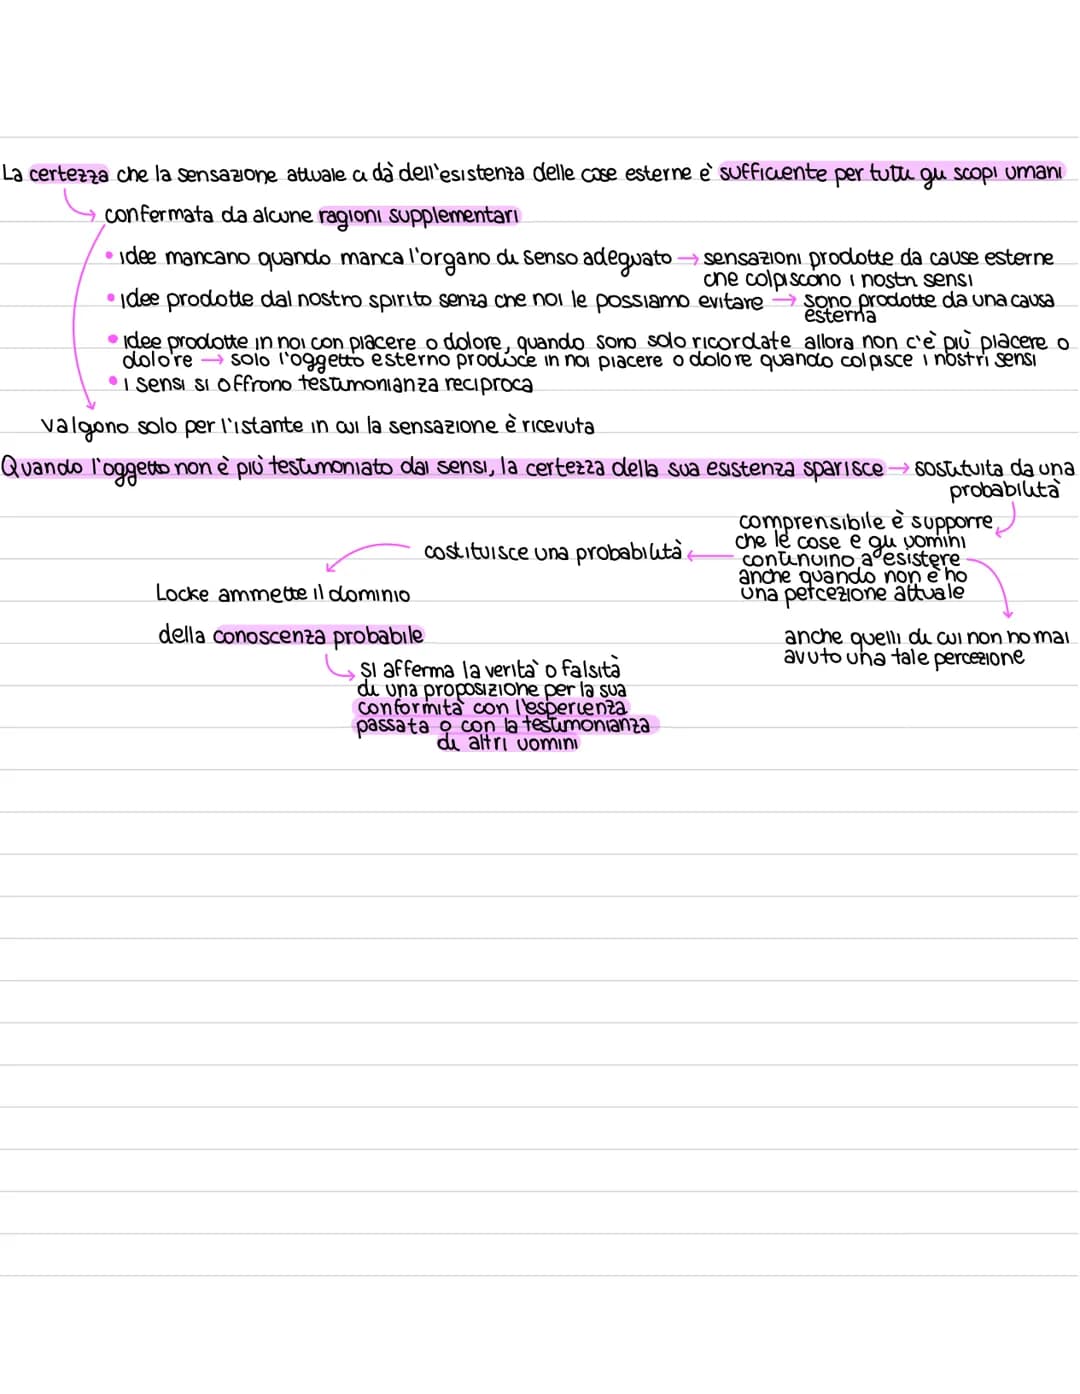 La certezza che la sensazione attuale ci dà dell'esistenza delle cose esterne è sufficiente per tutti gli scopi umani
confermata da alcune ragioni supplementari
• idee mancano quando manca l'organo di senso adeguato → sensazioni prodotte da cause esterne
che colpiscono i nostri sensi
• idee prodotte dal nostro spirito senza che noi le possiamo evitare → sono prodotte da una causa
esterna
• idee prodotte in noi con piacere o dolore, quando sono solo ricordate allora non c'è più piacere o
dolore → solo l'oggetto esterno produce in noi piacere o dolore quando colpisce i nostri sensi
• i sensi si offrono testimonianza reciproca
valgono solo per l'istante in cui la sensazione è ricevuta
Quando l'oggetto non è più testimoniato dai sensi, la certezza della sua esistenza sparisce → sostituita da una
probabilità
comprensibile è supporre
che le cose e gli uomini
continuino a esistere
anche quando non è ho
una percezione attuale
costituisce una probabilità
Locke ammette il dominio
della conoscenza probabile
anche quelli di cui non ho mai
avuto una tale percezione
si afferma la verità o falsità
di una proposizione per la sua
conformità con l'esperienza
passata o con la testimonianza
di altri uomini